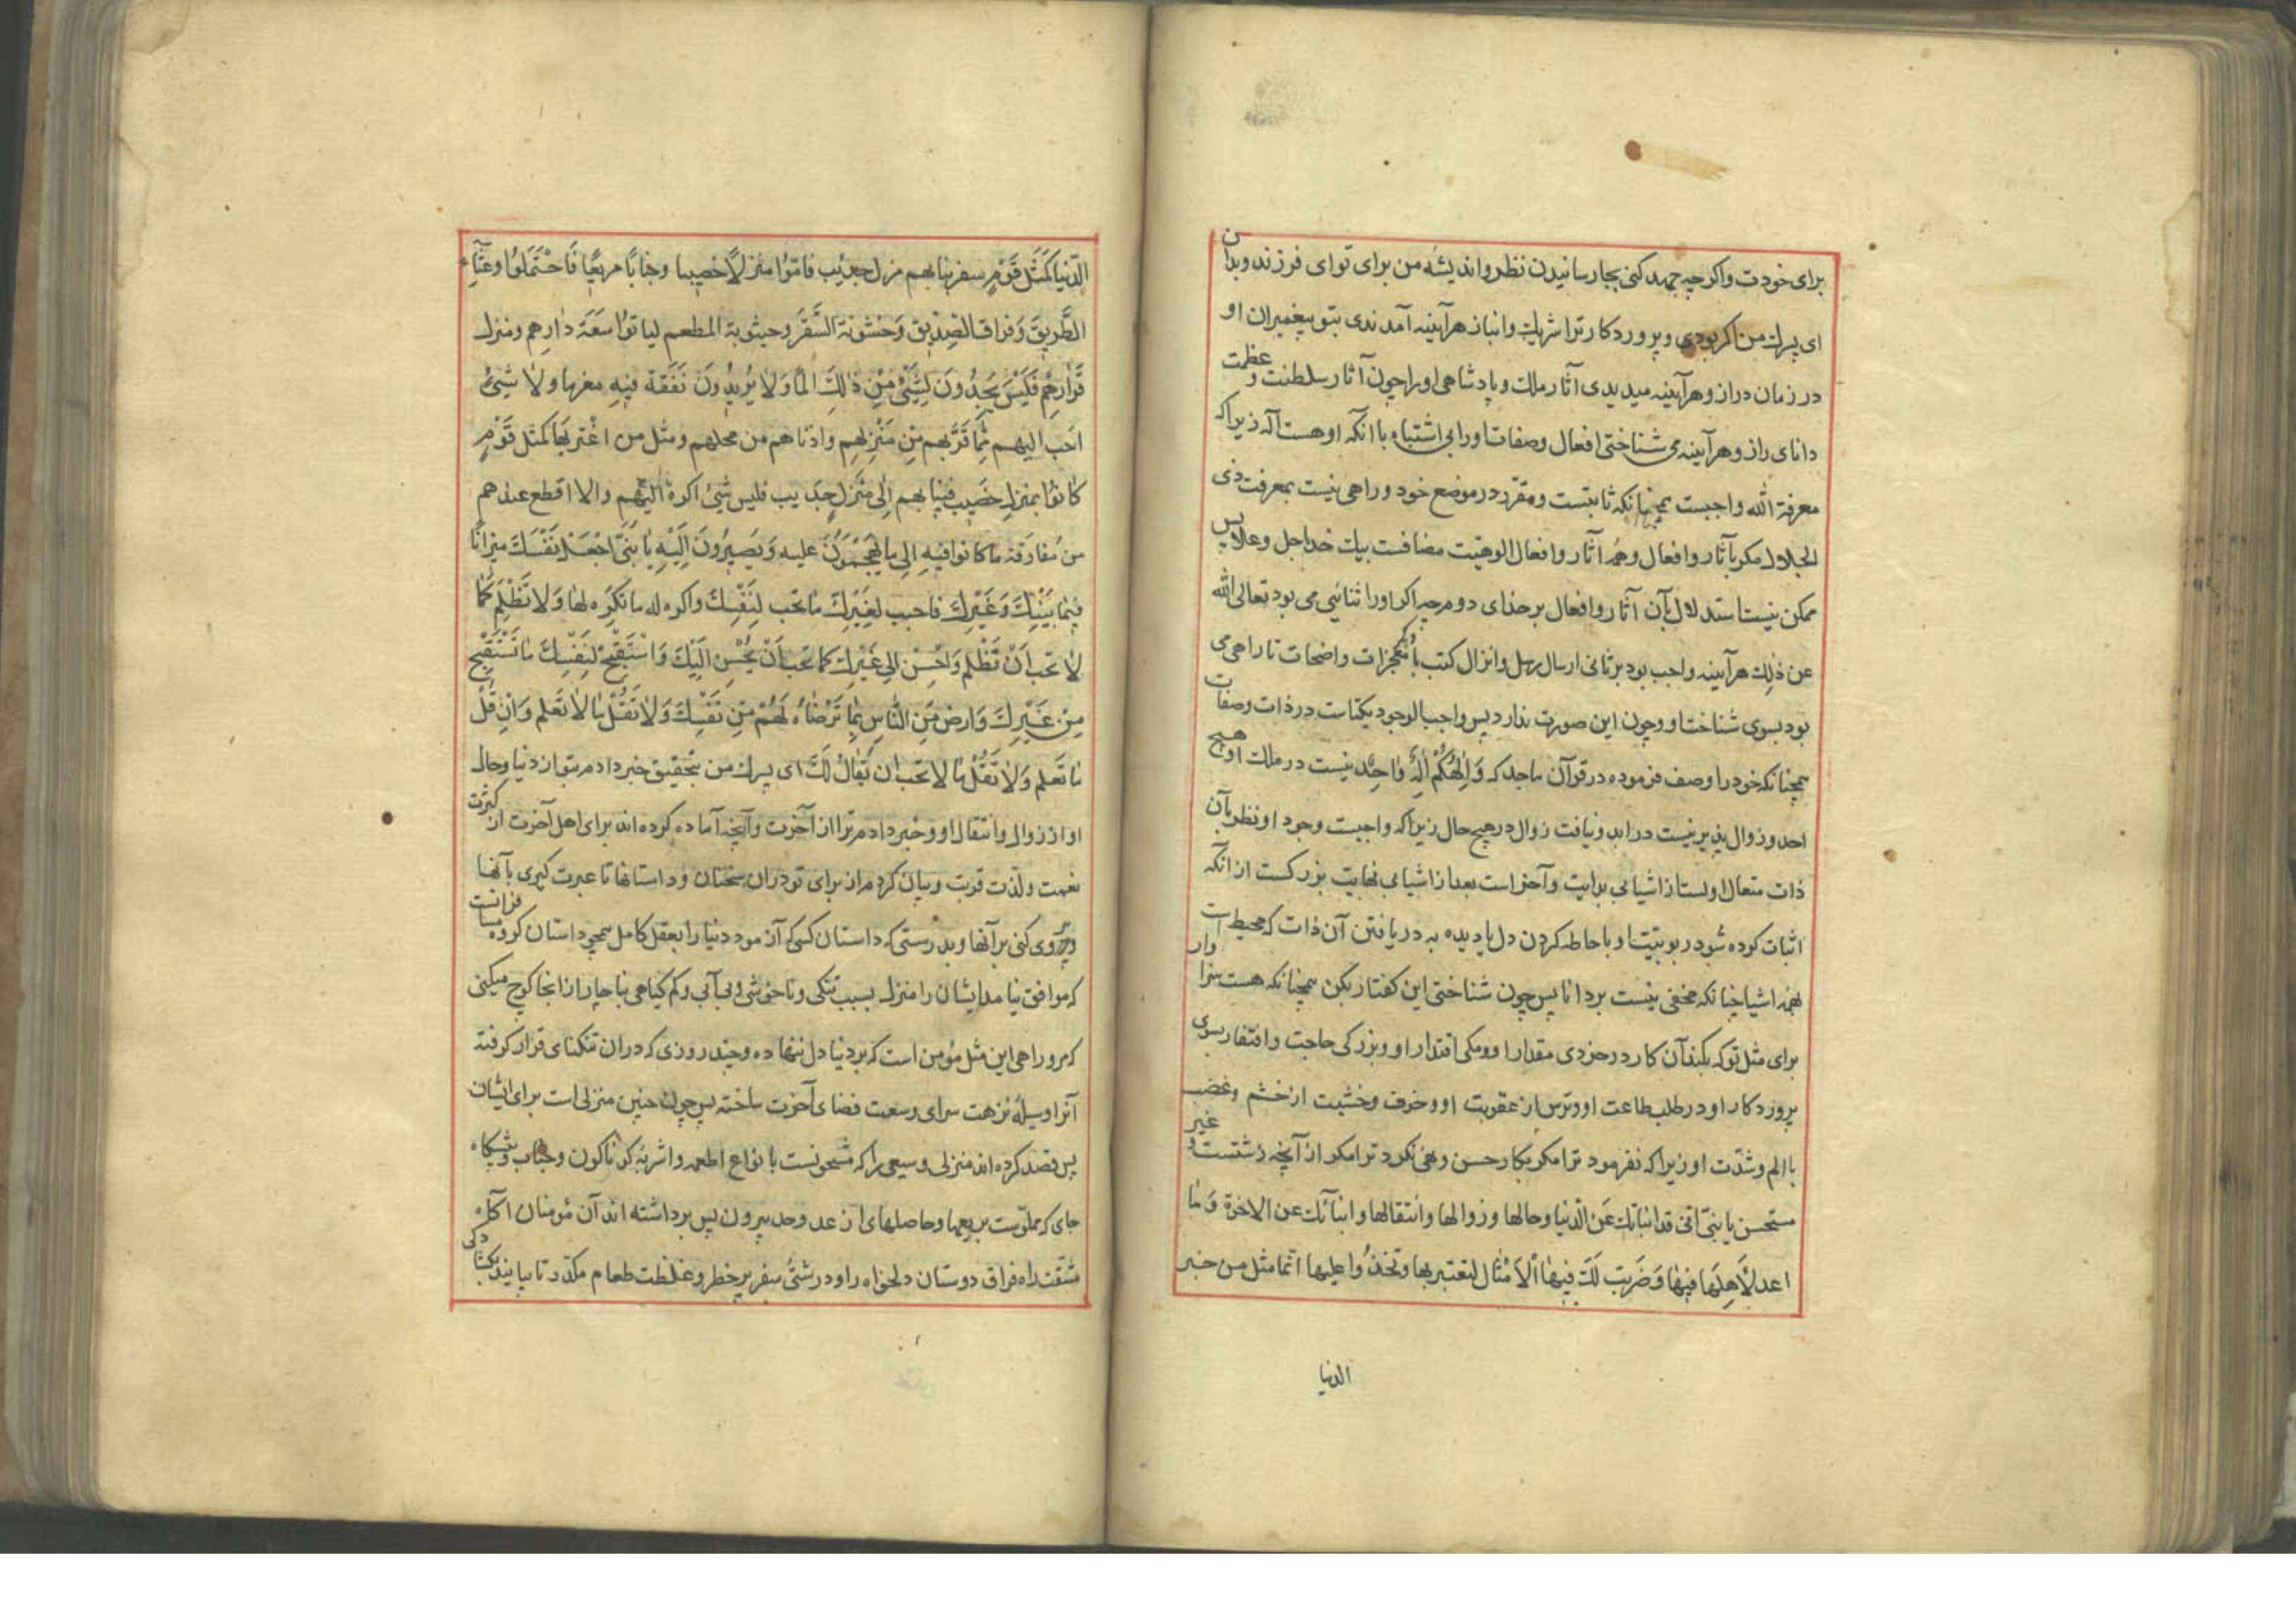 برای خودت واکرچه جهد کنی بجا رسانیدن نظر واندیشه من برای تو ای فرزند وبدان
ای پسرك من اکر بودی وپروردکار ترا شریك وانباز هرآینه آمدندی بتو پیغمبران او
در زمان دراز وهرآینه میدیدی آثار ملك وپادشاهی اورا چون آثار سلطنت وعظمت
دانای راز وهرآینه می شناختی افعال وصفات اورا بی اشتباه با انکه او هست آله زیراکه
معرفة الله واجبست همچنانکه ثابتست ومقرر در موضع خود وراهی نیست بمعرفت ذی
الجلال مکر بآثار وافعال وهمه آثار وافعال الوهیت مضافست بیك خدا جل وعلا پس
ممکن نیست استدلال بآن آثار وافعال بر خدای دوم چه اکر اورا ثنائیی می بود تعالی الله
عن ذلك هرآینه واجب بود بر ثانی ارسال رسل وانزال کتب با معجزات واضحات تا راهی می
بود بسوی شناخت او وچون این صورت ندارد پس واجب الوجود یکتاست در ذات وصفات
همچنانکه خود را وصف فرموده در قرآن ماجد که وَاِلٰهُكُمْ اِلٰهٌ وٰاحِدٌ نیست در ملك او هیچ
احد وزوال پذیر نیست در ابد ونیافت زوال در هیچ حال زیراکه واجبست وجود او نظر بآن
ذات متعال اولست از اشیا بی بدایت وآخر است بعد از اشیا بی نهایت بزرکست از انکه
اثبات کرده شود ربوبیّت او باحاطه کردن دل یا دیده به دریافتن آن ذات که محیط است
بهمه اشیا چنانکه مخفی نیست بر دانا پس چون شناختی این کفتار بکن همچنانکه هست سزاوار
برای مثل تو که بکند آن کار در خردی مقدار او وکمی اقتدار او وبزرکی حاجت وافتقار بسوی
پروردکار او در طلب طاعت او وترس از عقوبت او وخوف وخشیت از خشم وغضب
با الم وشدّت او زیراکه نفرمود ترا مکر بکار حسن ونهی نکرد ترا مکر از آنچه زشتست وغیر
مستحسن یا بنیّ انّی قد انباتك عَنِ الدّنیا وحالها وزوالها وانتقالها وانباتك عن الاخرة وَمٰا
اعد لِأَهِلهَا فیهٰا وَضَرَبت لَكَ فیهٰا الْاَمْثٰال لتعتبر بها وتحذُوا علیها انّما مثل من خبر
الدنیا
الدّنیا كَمَثَل قَوْمٍ سفر نبا بهم منزل جدیب فامّوا منزلاً خصیبا وجنابًا مریعًا فَاحْتَمَلُوا وعثآء
الطَّریقَ وَفراق الصّدیق وَخشونة السَّفَر وجشوبة المطعم لیاتوا سَعَةَ دٰارِهم ومنزل
قَرٰارِهِمْ فَلَیْسَ یَجِدُونَ لِشَیْءٍ مِنْ ذٰلِكَ المًا وَلٰا یَرَوْنَ نَفَقَة فیهِ مغرما ولٰا شَیْءٌ
احَب الیهم مِمّا قَرَّبهم مِن مَنْزلِهم وادناهم من محلهم ومثل من اغْتر بهَا كمثل قَوْمٍ
كٰانوا بمنزلٍ خَصیبٍ فَنَبا بهم اِلی مَنْزلٍ جدَیب فلیس شَیْءٌ اكرهَ الَیْهم والا اقطع عندهم
من مُفارَقة ما كانوا فیهِ الی ما یَهْجُمُونَ علیه وَیَصیرُونَ اِلَیْهِ یٰا بُنَیَّ اجْعَل نَفْسَكَ میزٰانًا
فیمٰا بَیْنَكَ وَغَیْرِكَ فاحبب لغَیْرِكَ مٰا تحب لِنَفْسِكَ واكره له ما تَكْرَه لهٰا وَلٰا تَظْلِم كَمٰا
لٰا تحب اَنْ تُظْلَم وَاَحْسِنْ اِلی غَیْرِكَ كما تحب اَنْ یُحْسَن اِلَیْكَ وَاسْتَقْبِحْ لِنَفْسِكَ مٰا تَسْتَقْبِح
مِنْ غَیْرِكَ وَارضَ مِن النّاس بِمٰا تَرْضٰاهُ لَهُمْ مِن نَفْسِكَ وَلٰا تَقُلْ مٰا لٰا تَعْلم وَاِنْ قَلَّ
مٰا تَعْلم وَلٰا تَقُلْ مٰا لا تحب ان یُقالَ لَكَ ای پسرك من بتحقیق خبر دادم بتو از دنیا وحال
او از زوال وانتقال او وخبر دادم ترا از آخرت وآنچه آماده کرده اند برای اهل آخرت از کثرت
نعمت ولذت قربت وبیان کردم از برای تو دران سخنان وداستانها تا عبرت کیری بآنها
وپیروی کنی بر آنها وبدرستی که داستان کسی که آن مود دنیا را بعقل کامل همچو داستان کروه مسافرانست
که موافق نیامد ایشان را منزل بسبب تنکی وناخوشی وبی آبی وکم کیاهی بناچار از انجا کوچ میکنی
که مرو راهی این مثل مؤمن است که بر دنیا دل ننهاده وچند روزی که دران تنکنای قرار کرفته
آنرا وسیلهٔ نزهت سرای وسعت فضای آخرت ساخته پس چون چنین منزلی است برای ایشان
پس قصد کرده اند منزلی وسیعی را که مشحونست بانواع اطعمه واشربهٔ کوناکون وجناب وپیشکاه
جای که مملوّست بریعها وحاصلهای از عد وحد بیرون پس برداشته اند آن مؤمنان آکاه
مشقت راه فراق دوستان دلخواه را ودرشتی سفر پر خطر وغلظت طعام مکدّر تا بیایند بکشادکی